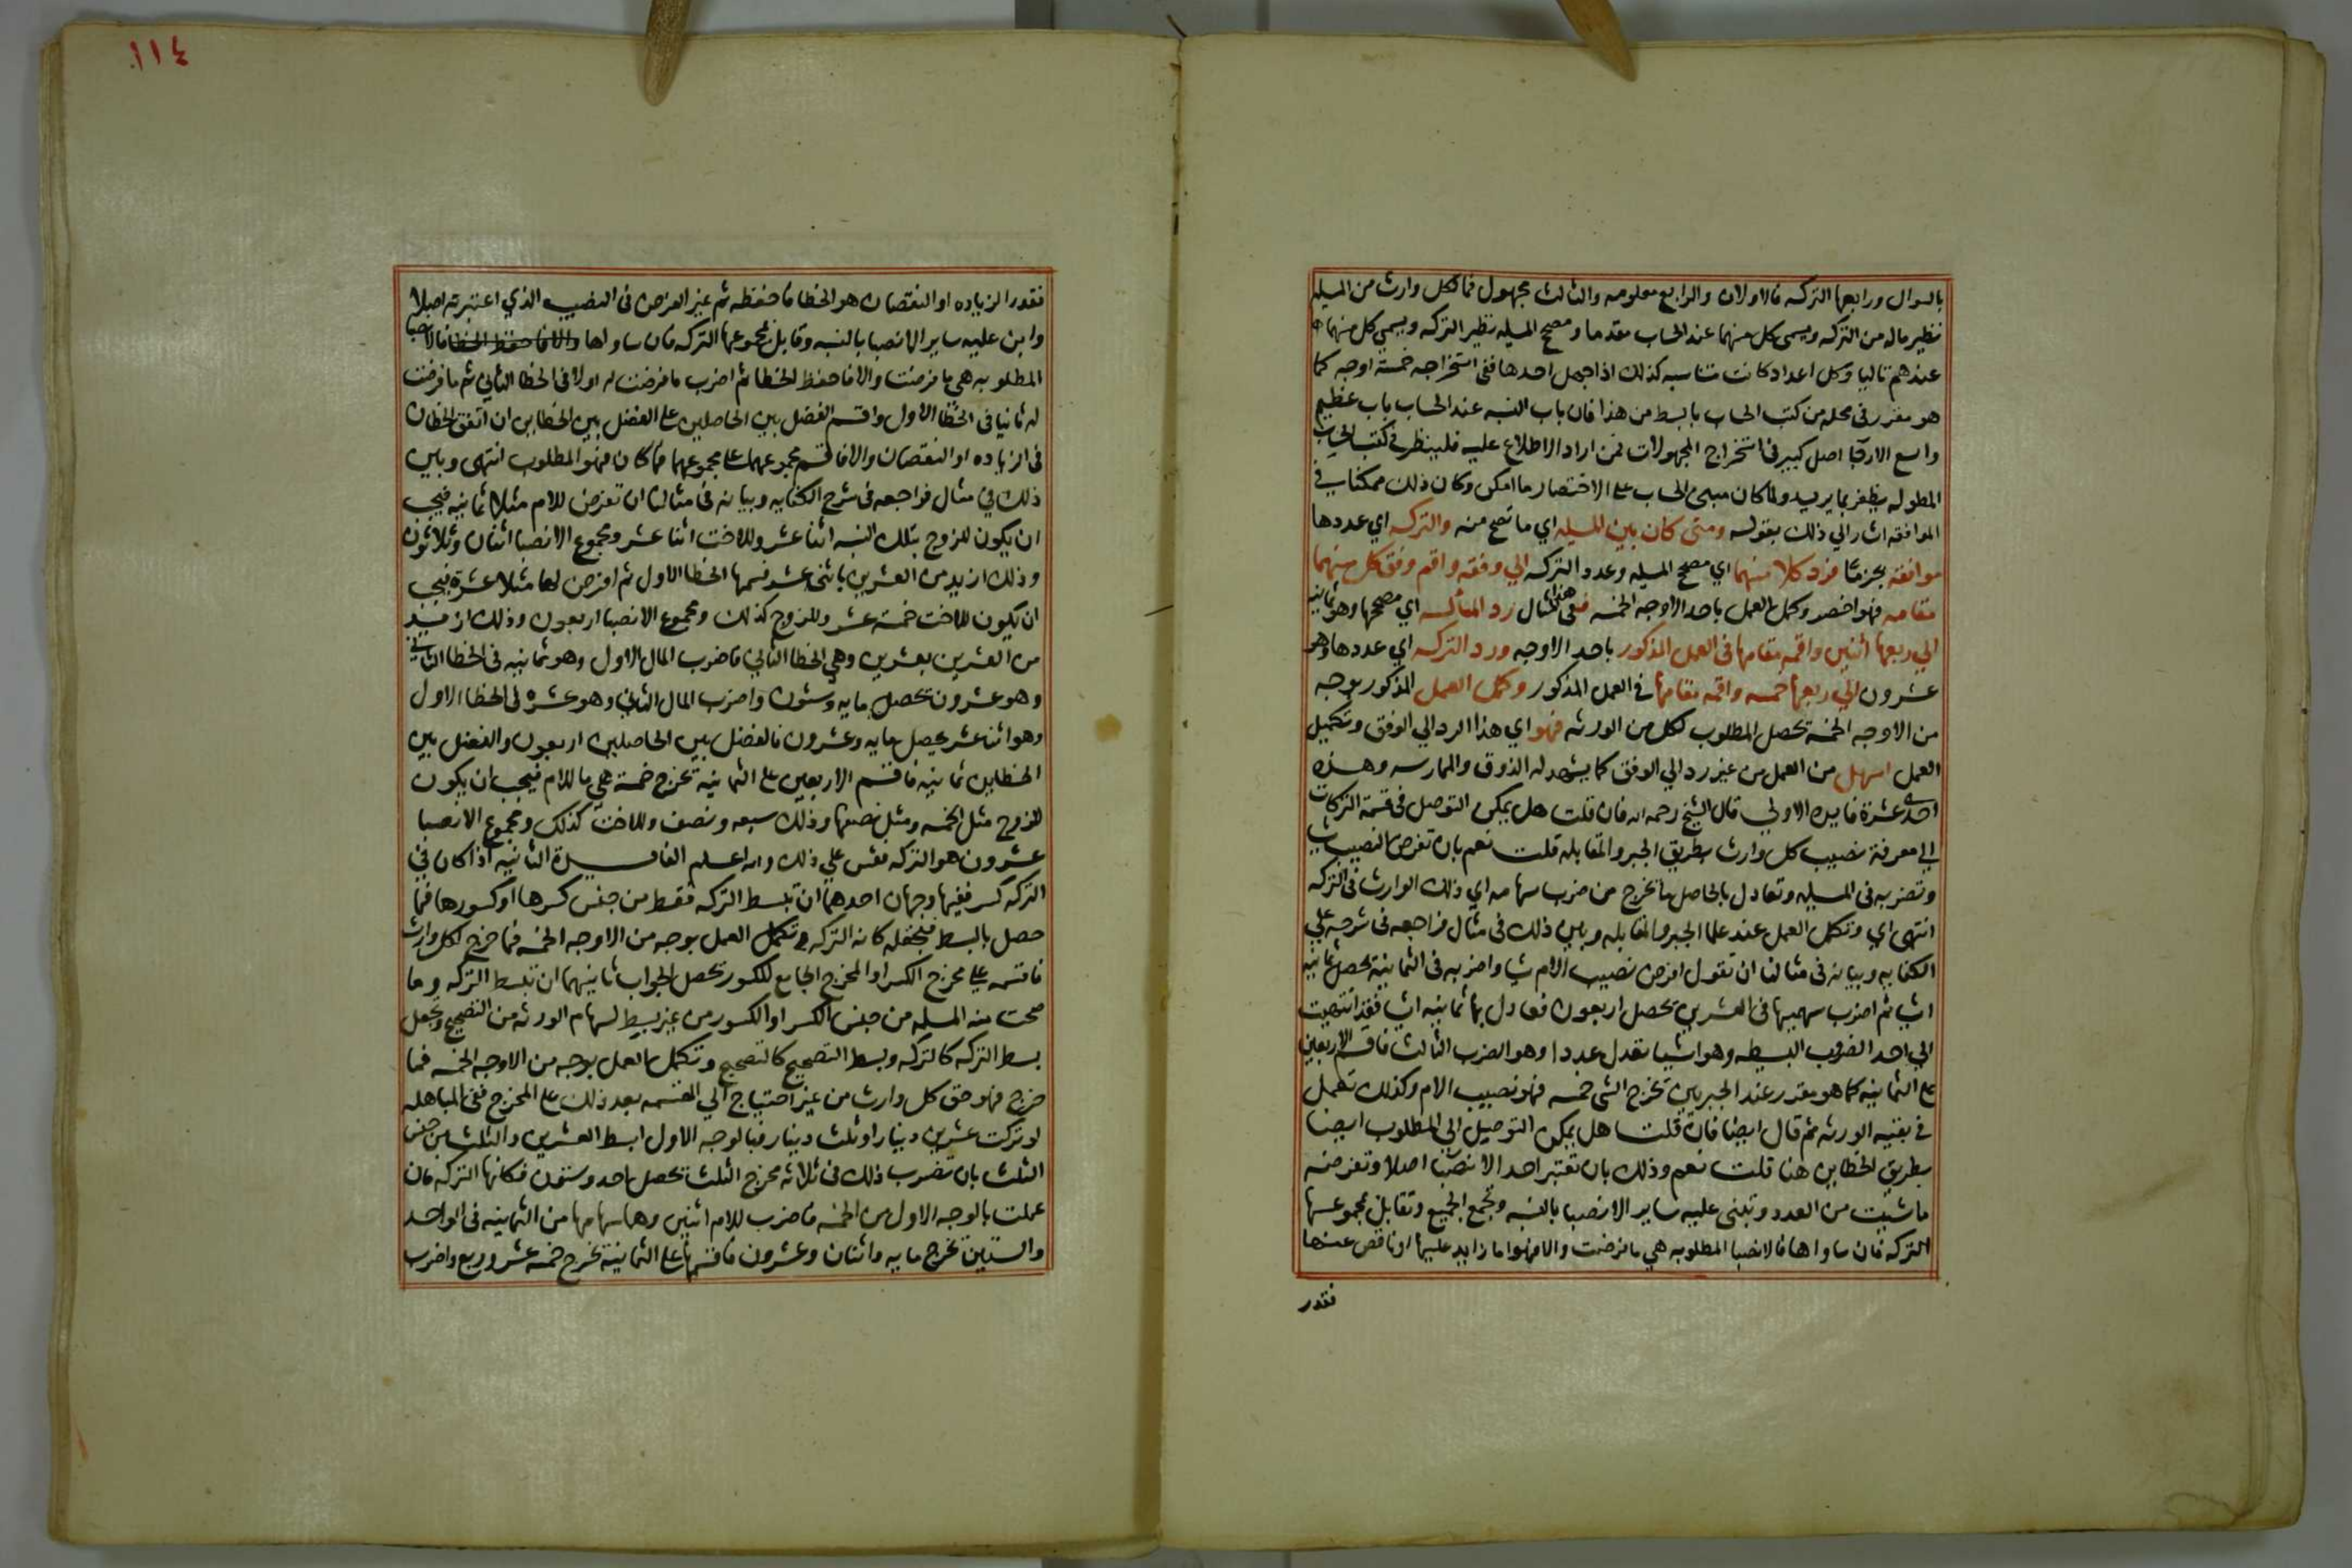 بالسوال ورابعها التركه فالاولان والرابع معلومه والثالث مجهول فما لكل وارث من المسيله
نظير ماله من التركه ويسمى كل منهما عند الحساب مقدما ومصحح المسيله نظير التركه ويسمى كل منهما
عندهم تاليا وكل اعداد كانت متناسبه كذلك اذا جهل احدها ففى استخراجه خمسة اوجه كما
هو مقرر فى محله من كتب الحساب بابسط من هذا فان باب النسبه عند الحساب باب عظيم
واسع الارجا اصل كبير فى استخراج المجهولات فمن اراد الاطلاع عليه فلينظر فى كتب الحساب
المطوله يظفر بما يريد ولما كان مبنى الحساب على الاختصار ما امكن وكان ذلك ممكنا في
الموافقه اشار الي ذلك بقوله ومتى كان بين المسيله اي ما تصح منه والتركه اي عددها
موافقه بجزء ما فرد كلا منهما اي مصحح المسيله وعدد التركه الي وفقه واقم وفق كل منهما
مقامه فهو اخصر وكمل العمل باحد الاوجه الخمسه ففى هذا المثال رد المسأله اي مصححها وهو ثمانيه
الي ربعها اثنين واقمه مقامها فى العمل المذكور باحد الاوجه ورد التركه اي عددها وهو
عشرون الي ربعها خمسه واقمه مقامها في العمل المذكور وكمل العمل المذكور بوجه
من الاوجه الخمسه تحصل المطلوب لكل من الورثه فهو اي هذا الرد الي الوفق وتكميل
العمل اسهل من العمل من غير رد الي الوفق كما يشهد له الذوق والممارسه وهذه
احدى عشرة فايده الاولي قال الشيخ رحمه الله فان قلت هل يمكن التوصل فى قسمة التركات
الي معرفة نصيب كل وارث بطريق الجبر والمقابله قلت نعم بان تفرض النصيب شيا
وتضربه فى المسيله وتعادل بالحاصل ما تخرج من ضرب سهامه اي ذلك الوارث فى التركه
انتهى اي وتكمل العمل عند علما الجبر والمقابله وبين ذلك فى مثال فراجعه فى شرحه على
الكفايه وبيانه فى مثالنا ان تقول افرض نصيب الام شيا واضربه فى الثمانية يحصل ثمانيه
اشيا ثم اضرب سهميها فى العشرين تحصل اربعون فعادل بها ثمانيه اشيا فقد انتهيت
الي احد الضروب البسيطه وهو اشيا تعدل عددا وهو الضرب الثالث فاقسم الاربعين
على الثمانيه كما هو مقرر عند الجبريين تخرج الشى خمسه فهو نصيب الام وكذلك تعمل
في بقيه الورثه ثم قال ايضا فان قلت هل يمكن التوصل الي المطلوب ايضا
بطريق الخطاين هنا قلت نعم وذلك بان تعتبر احد الانصبا اصلا وتفرضه
ما شيت من العدد وتبنى عليه ساير الانصبا بالنسبه وتجمع الجميع وتقابل بمجموعها
التركه فان ساواها فالانصبا المطلوبه هي ما فرضت والا فهو اما زايد عليها او ناقص عنها
فقدر
١١٤
فقدر الزياده او النقصان هو الخطا فاحفظه ثم غير الفرض فى النصيب الذي اعتبرته اصلا
وابن عليه ساير الانصبا بالنسبه وقابل بمجموعها التركه فان ساواها والا فاحفظ الخطا فالانصبا
المطلوبه هي ما فرضت والا فاحفظ الخطا ثم اضرب ما فرضت له اولا فى الخطا الثاني ثم ما فرضت
له ثانيا فى الخطا الاول واقسم الفضل بين الحاصلين على الفضل بين الخطاين ان اتفق الخطان
فى الزياده او النقصان والا فاقسم مجموعهما على مجموعهما فما كان فهو المطلوب انتهى وبين
ذلك في مثال فراجعه فى شرح الكفايه وبيانه فى مثالنا ان تفرض للام مثلا ثمانيه فيجب
ان يكون للزوج بتلك النسبه اثنا عشر وللاخت اثنا عشر ومجموع الانصبا اثنان وثلاثون
وذلك ازيد من العشرين باثنى عشر فسمها الخطا الاول ثم افرض لها مثلا عشرة فيجب
ان يكون للاخت خمسة عشر وللزوج كذلك ومجموع الانصبا اربعون وذلك ازيد
من العشرين بعشرين وهي الخطا الثاني فاضرب المال الاول وهو ثمانيه فى الخطا الثاني
وهو عشرون تحصل مايه وستون واضرب المال الثاني وهو عشرة فى الخطا الاول
وهو اثنا عشر يحصل مايه وعشرون فالفضل بين الحاصلين اربعون والفضل بين
الخطاين ثمانيه فاقسم الاربعين على الثمانية تخرج خمسة هي ما للام فيجب ان يكون
للزوج مثل الخمسه ومثل نصفها وذلك سبعه ونصف وللاخت كذلك ومجموع الانصبا
عشرون هو التركه فقس علي ذلك والله اعلم الفايدة الثانيه اذا كان في
التركه كسر ففيها وجهان احدهما ان تبسط التركه فقط من جنس كسرها او كسورها فما
حصل بالبسط فتجعله كانه التركه وتكمل العمل بوجه من الاوجه الخمسه فما خرج لكل وارث
فاقسمه على مخرج الكسر او المخرج الجامع للكسور تحصل الجواب ثانيهما ان تبسط التركه وما
صحت منه المسيله من جنس الكسر او الكسور من غير بسط لسهام الورثه من التصحيح وتجعل
بسط التركه كالتركه وبسط التصحيح كالتصحيح وتكمل العمل بوجه من الاوجه الخمسه فما
خرج فهو حق كل وارث من غير احتياج الي القسمه بعد ذلك على المخرج ففى المباهله
لو تركت عشرين دينارا وثلث دينار فبالوجه الاول ابسط العشرين والثلث من جنس
الثلث بان تضرب ذلك فى ثلاثه مخرج الثلث تحصل احد وستون فكانها التركه فان
عملت بالوجه الاول من الخمسه فاضرب للام اثنين وهما سهامها من الثمانيه فى الواحد
والستين تخرج مايه واثنان وعشرون فاقسمها على الثمانية تخرج خمسه عشر وربع واضرب